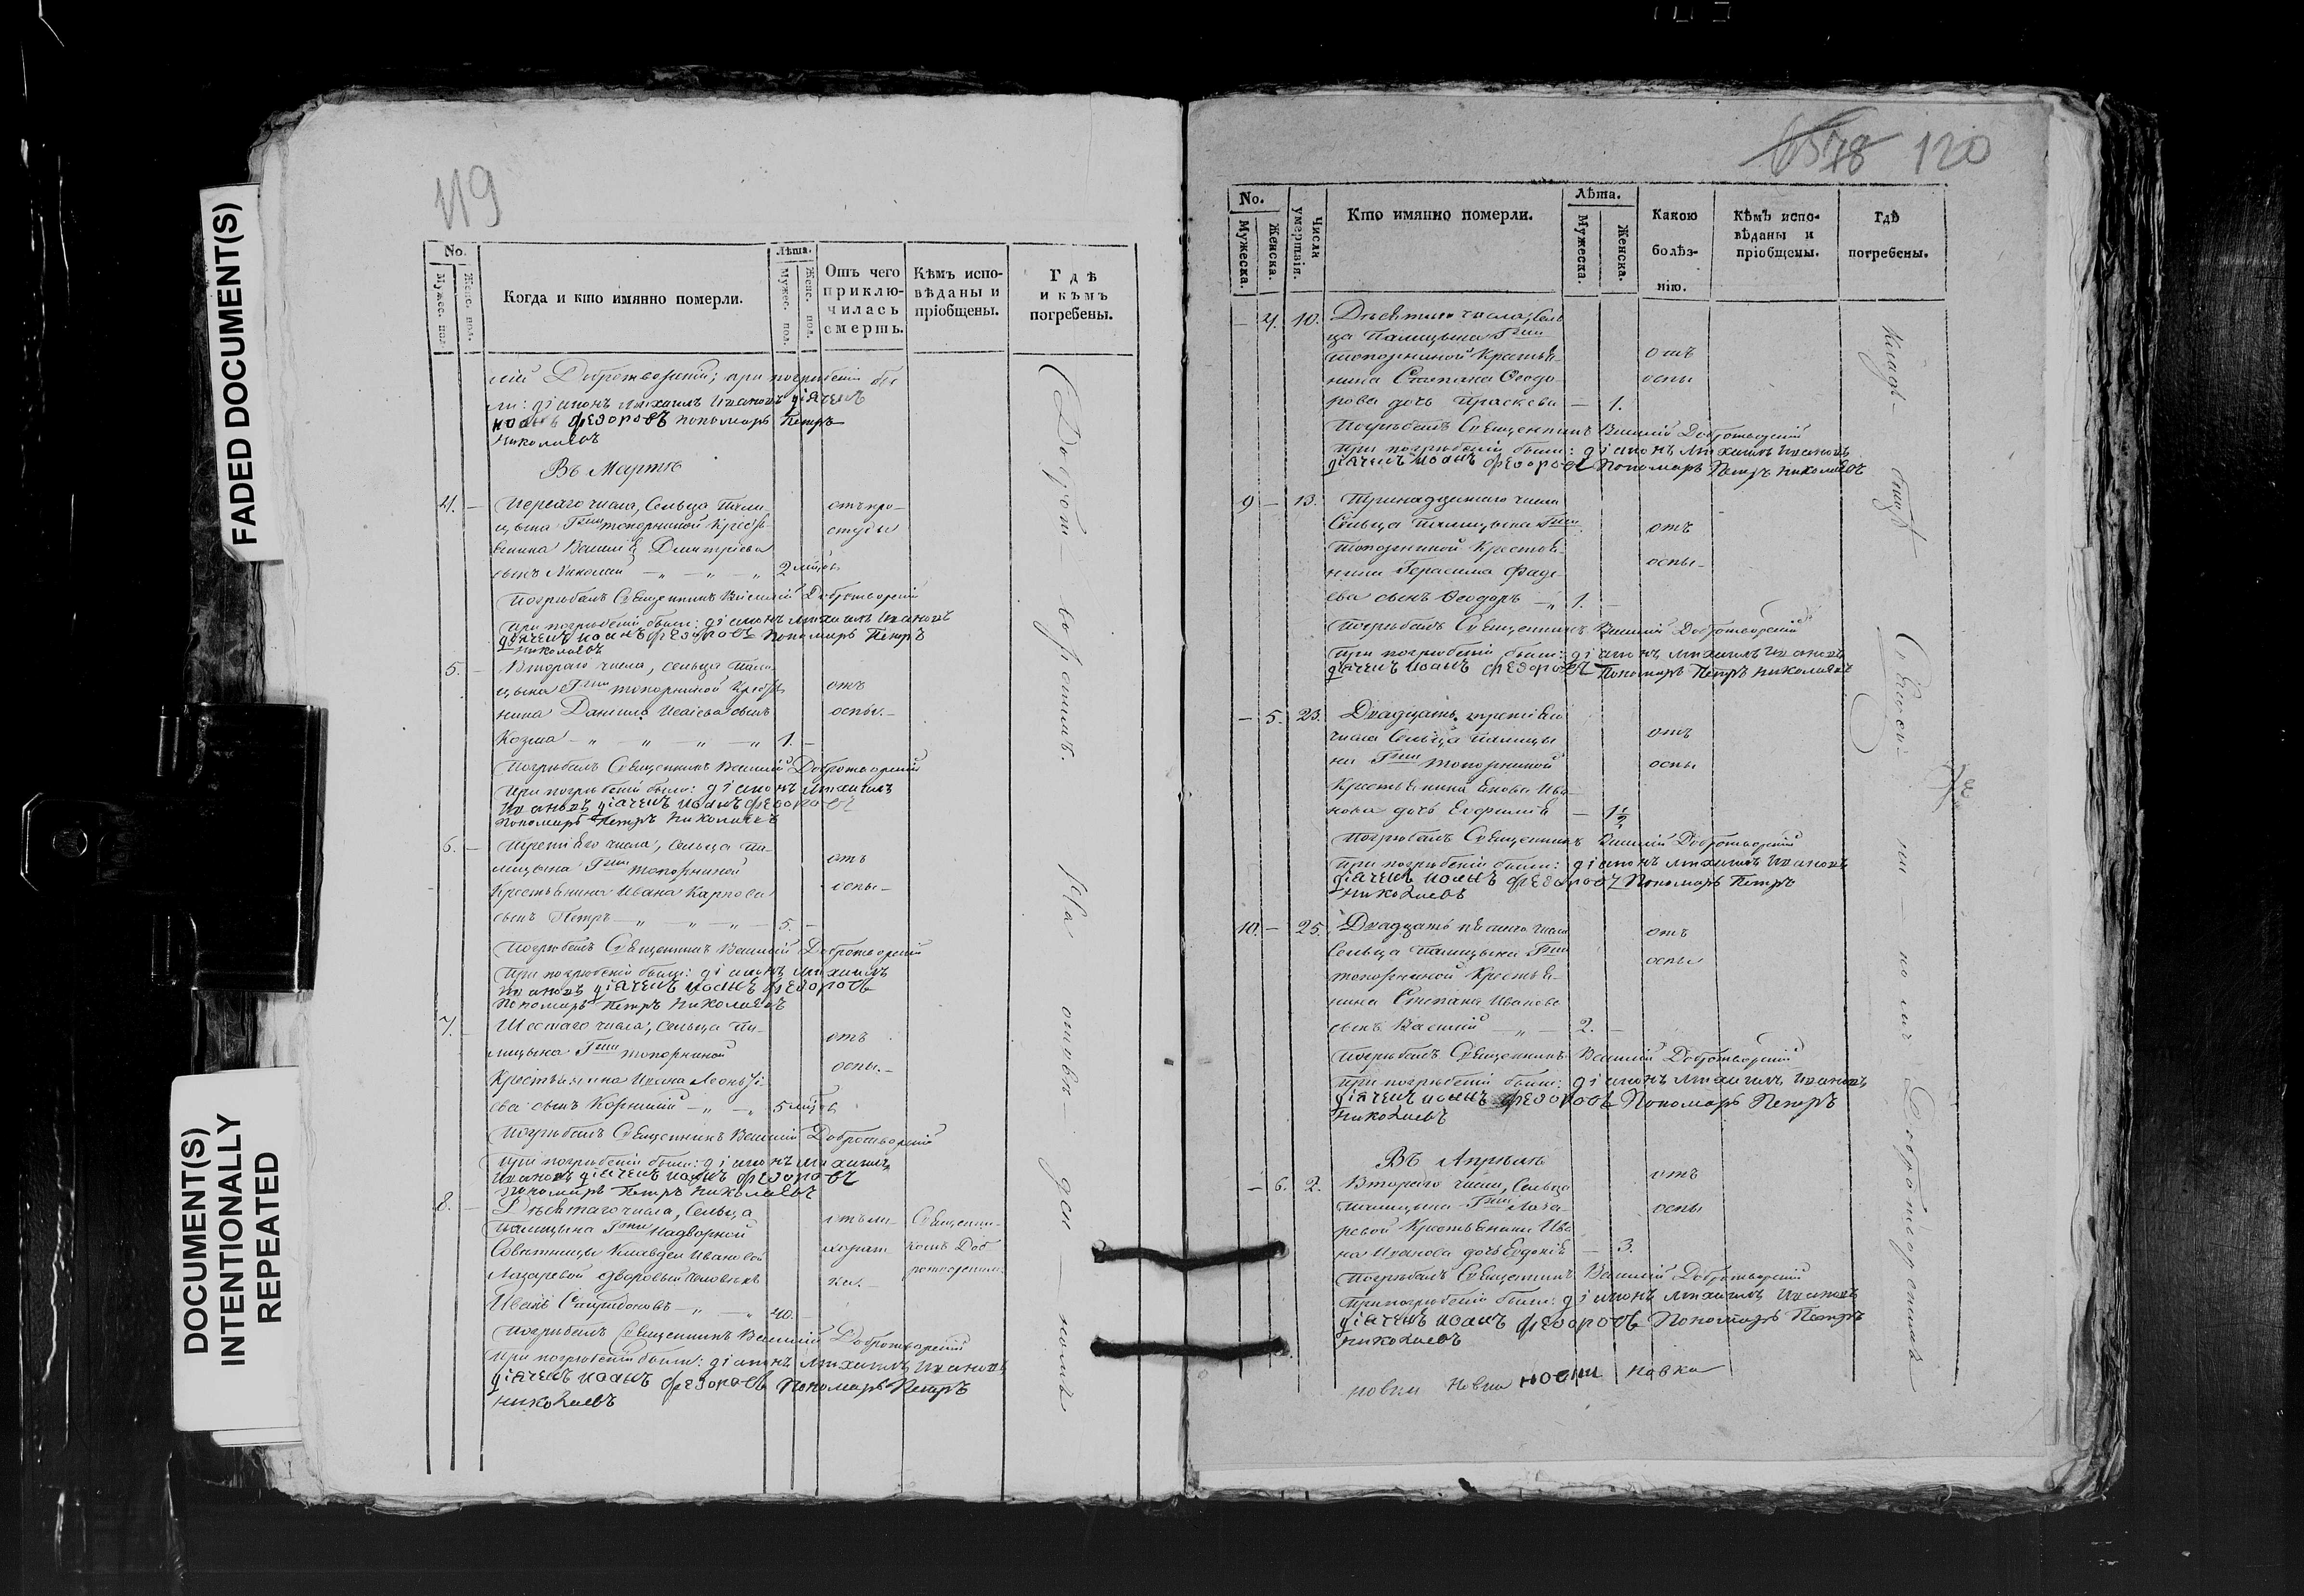 FADED DOCUMENT(S)
DOCUMENT(S)
INTENTIONALLY
REPEATED
119
No.
Мужес. пол.
Женс. пол.
Когда и кто имянно померли.
Лѣта.
Мужес. пол.
Женс. пол.
Отъ чего
приклю-
чилась
смерть.
Кѣмъ испо-
вѣданы и
пріобщены.
Гдѣ
и кѣмъ
погребены.
лій Добротворскій; при погребеніи бы
ли: діаконъ Михаилъ Ивановъ дiячекъ
Иоанъ Федоровъ пономарь Петръ
Николаевъ
Въ Мартѣ
4. — Перваго числа, Сельца Пали-
цына Гжи Топорниной Кресть-
янина Василія Дмитріева
сынъ Николай — „ — „ — „ 2 мцовъ
отъ про-
студы
Погребалъ Священникъ Василій Добротворскій
При погребеніи были: діаконъ Михаилъ Ивановъ
дiячекъ Иоанъ Федоровъ Пономарь Петръ
Николаевъ
5. — Втораго числа, сельца Пали-
цына Гжи Топорниной Крестья-
нина Данила Исаіева сынъ
Козма — „ — „ — „ — „ 1. —
отъ
оспы. —
Погребалъ Священникъ Василій Добротворскій
При погребеніи были: діаконъ Михаилъ
Ивановъ дiячекъ Иоанъ Федоровъ
Пономарь Петръ Николаевъ
6. — Третьяго числа, сельца Па-
лицына Гжи Топорниной
Крестьянина Ивана Карпова
сынъ Петръ — „ — „ — „ — 5. —
отъ
оспы —
Погребалъ Священникъ Василій Добротворскій
При погребеніи были: діаконъ Михаилъ
Ивановъ дiячекъ Иоанъ Федоровъ
Пономарь Петръ Николаевъ
7. — Шестаго числа, сельца Па-
лицына Гжи Топорниной
Крестьянина Ивана Леонтi-
ева сынъ Корнилій — „ — „ 5 мцовъ
отъ
оспы. —
Погребалъ Священникъ Василій Добротворскій
При погребеніи были: діаконъ Михаилъ
Ивановъ дiячекъ Иоанъ Федоровъ
Пономарь Петръ Николаевъ
8. — Девятаго числа, Сельца
Палицына Гжи Надворной
Совѣтницы Клавдеи Ивановой
Лазаревой дворовый человѣкъ
Иванъ Спиридоновъ — „ — „ 40. —
отъ ли-
хорат
ки. —
Священни-
комъ Доб
ротворскимъ
Погребалъ Священникъ Василій Добротворскій
При погребеніи были: діаконъ Михаилъ Ивановъ
дiячекъ Иоанъ Федоровъ Пономарь Петръ
Николаевъ
На отведенномъ
120
No.
Мужеска.
Женска.
Числа
умершія.
Кто имянно померли.
Лѣта.
Мужеска.
Женска.
Какою
болѣз-
нію.
Кѣмъ испо-
вѣданы и
пріобщены.
Гдѣ
погребены.
— 4. 10. Десятаго числа, Сель
ца Палицына Гжи
Топорниной Крестья-
нина Степана Ѳеодо-
рова дочь Праскева — 1.
отъ
оспы
Погребалъ Священникъ Василій Добротворскій
При погребеніи были: діаконъ Михаилъ Ивановъ
дiячекъ Иоанъ Федоровъ Пономарь Петръ Николаевъ
9 — 13. Тринадцатаго числа
Сельца Палицына Гжи
Топорниной Крестья-
нина Герасима Фаде-
ева сынъ Ѳеодоръ — „ 1. —
отъ
оспы —
Погребалъ Священникъ Василій Добротворскій
При погребеніи были: діаконъ Михаилъ Ивановъ
дiячекъ Иоанъ Федоровъ Пономарь Петръ Николаевъ
— 5. 23. Двадцать третьяго
числа Сельца Палицы
на Гжи Топорниной
Крестьянина Якова Ива
нова дочь Евфимія — 1½
отъ
оспы
Погребалъ Священникъ Василій Добротворскій
При погребеніи были: діаконъ Михаилъ Ивановъ
дiячекъ Иоанъ Федоровъ Пономарь Петръ
Николаевъ
10. — 25. Двадцать пятаго числа
Сельца Палицына Гжи
Топорниной Крестья-
нина Степана Иванова
сынъ Василій — „ — 2. —
отъ
оспы
Погребалъ Священникъ Василій Добротворскій
При погребеніи были: діаконъ Михаилъ Ивановъ
дiячекъ Иоанъ Федоровъ Пономарь Петръ
Николаевъ
Въ Апрѣлѣ
— 6. 2. Втораго числа, Сельца
Палицына Гжи Лаза-
ревой Крестьянина Ива
на Иванова дочь Евдокія — 3.
отъ
оспы
Погребалъ Священникъ Василій Добротворскій
При погребеніи были: діаконъ Михаилъ Ивановъ
дiячекъ Иоанъ Федоровъ Пономарь Петръ
Николаевъ
Кладбищѣ
Священникомъ Добротворскимъ